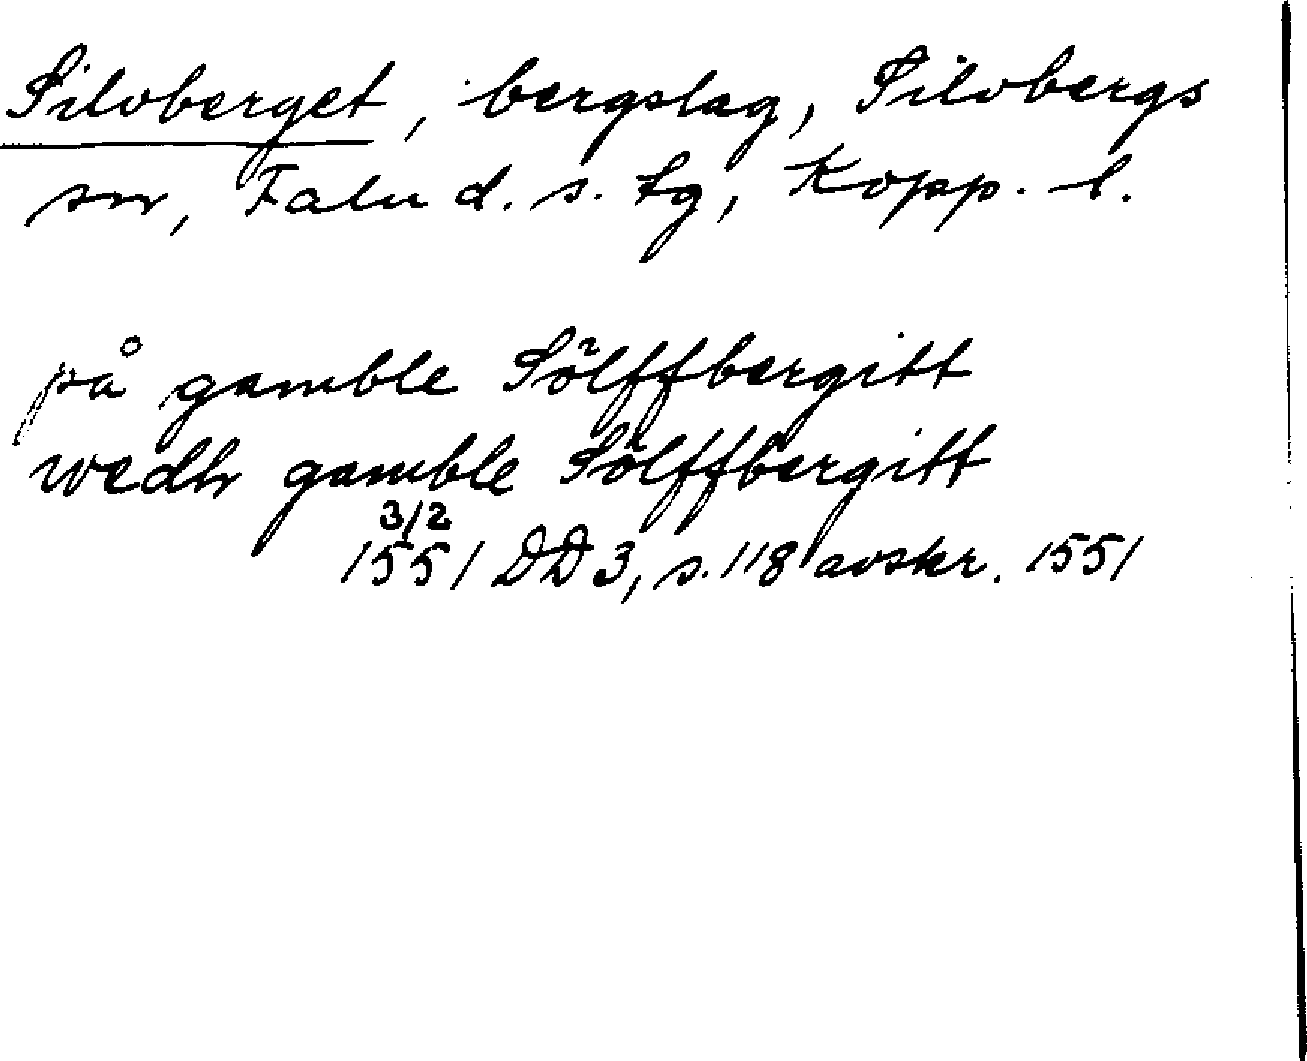 Silvberget, bergslag, Silvbergs
sn, Falu d. s. tg, Kopp. l.
på gamble Sölffbergitt
wedh gamble Sölffbergitt
3/2
1551 DD 3, s. 118 avskr. 1551